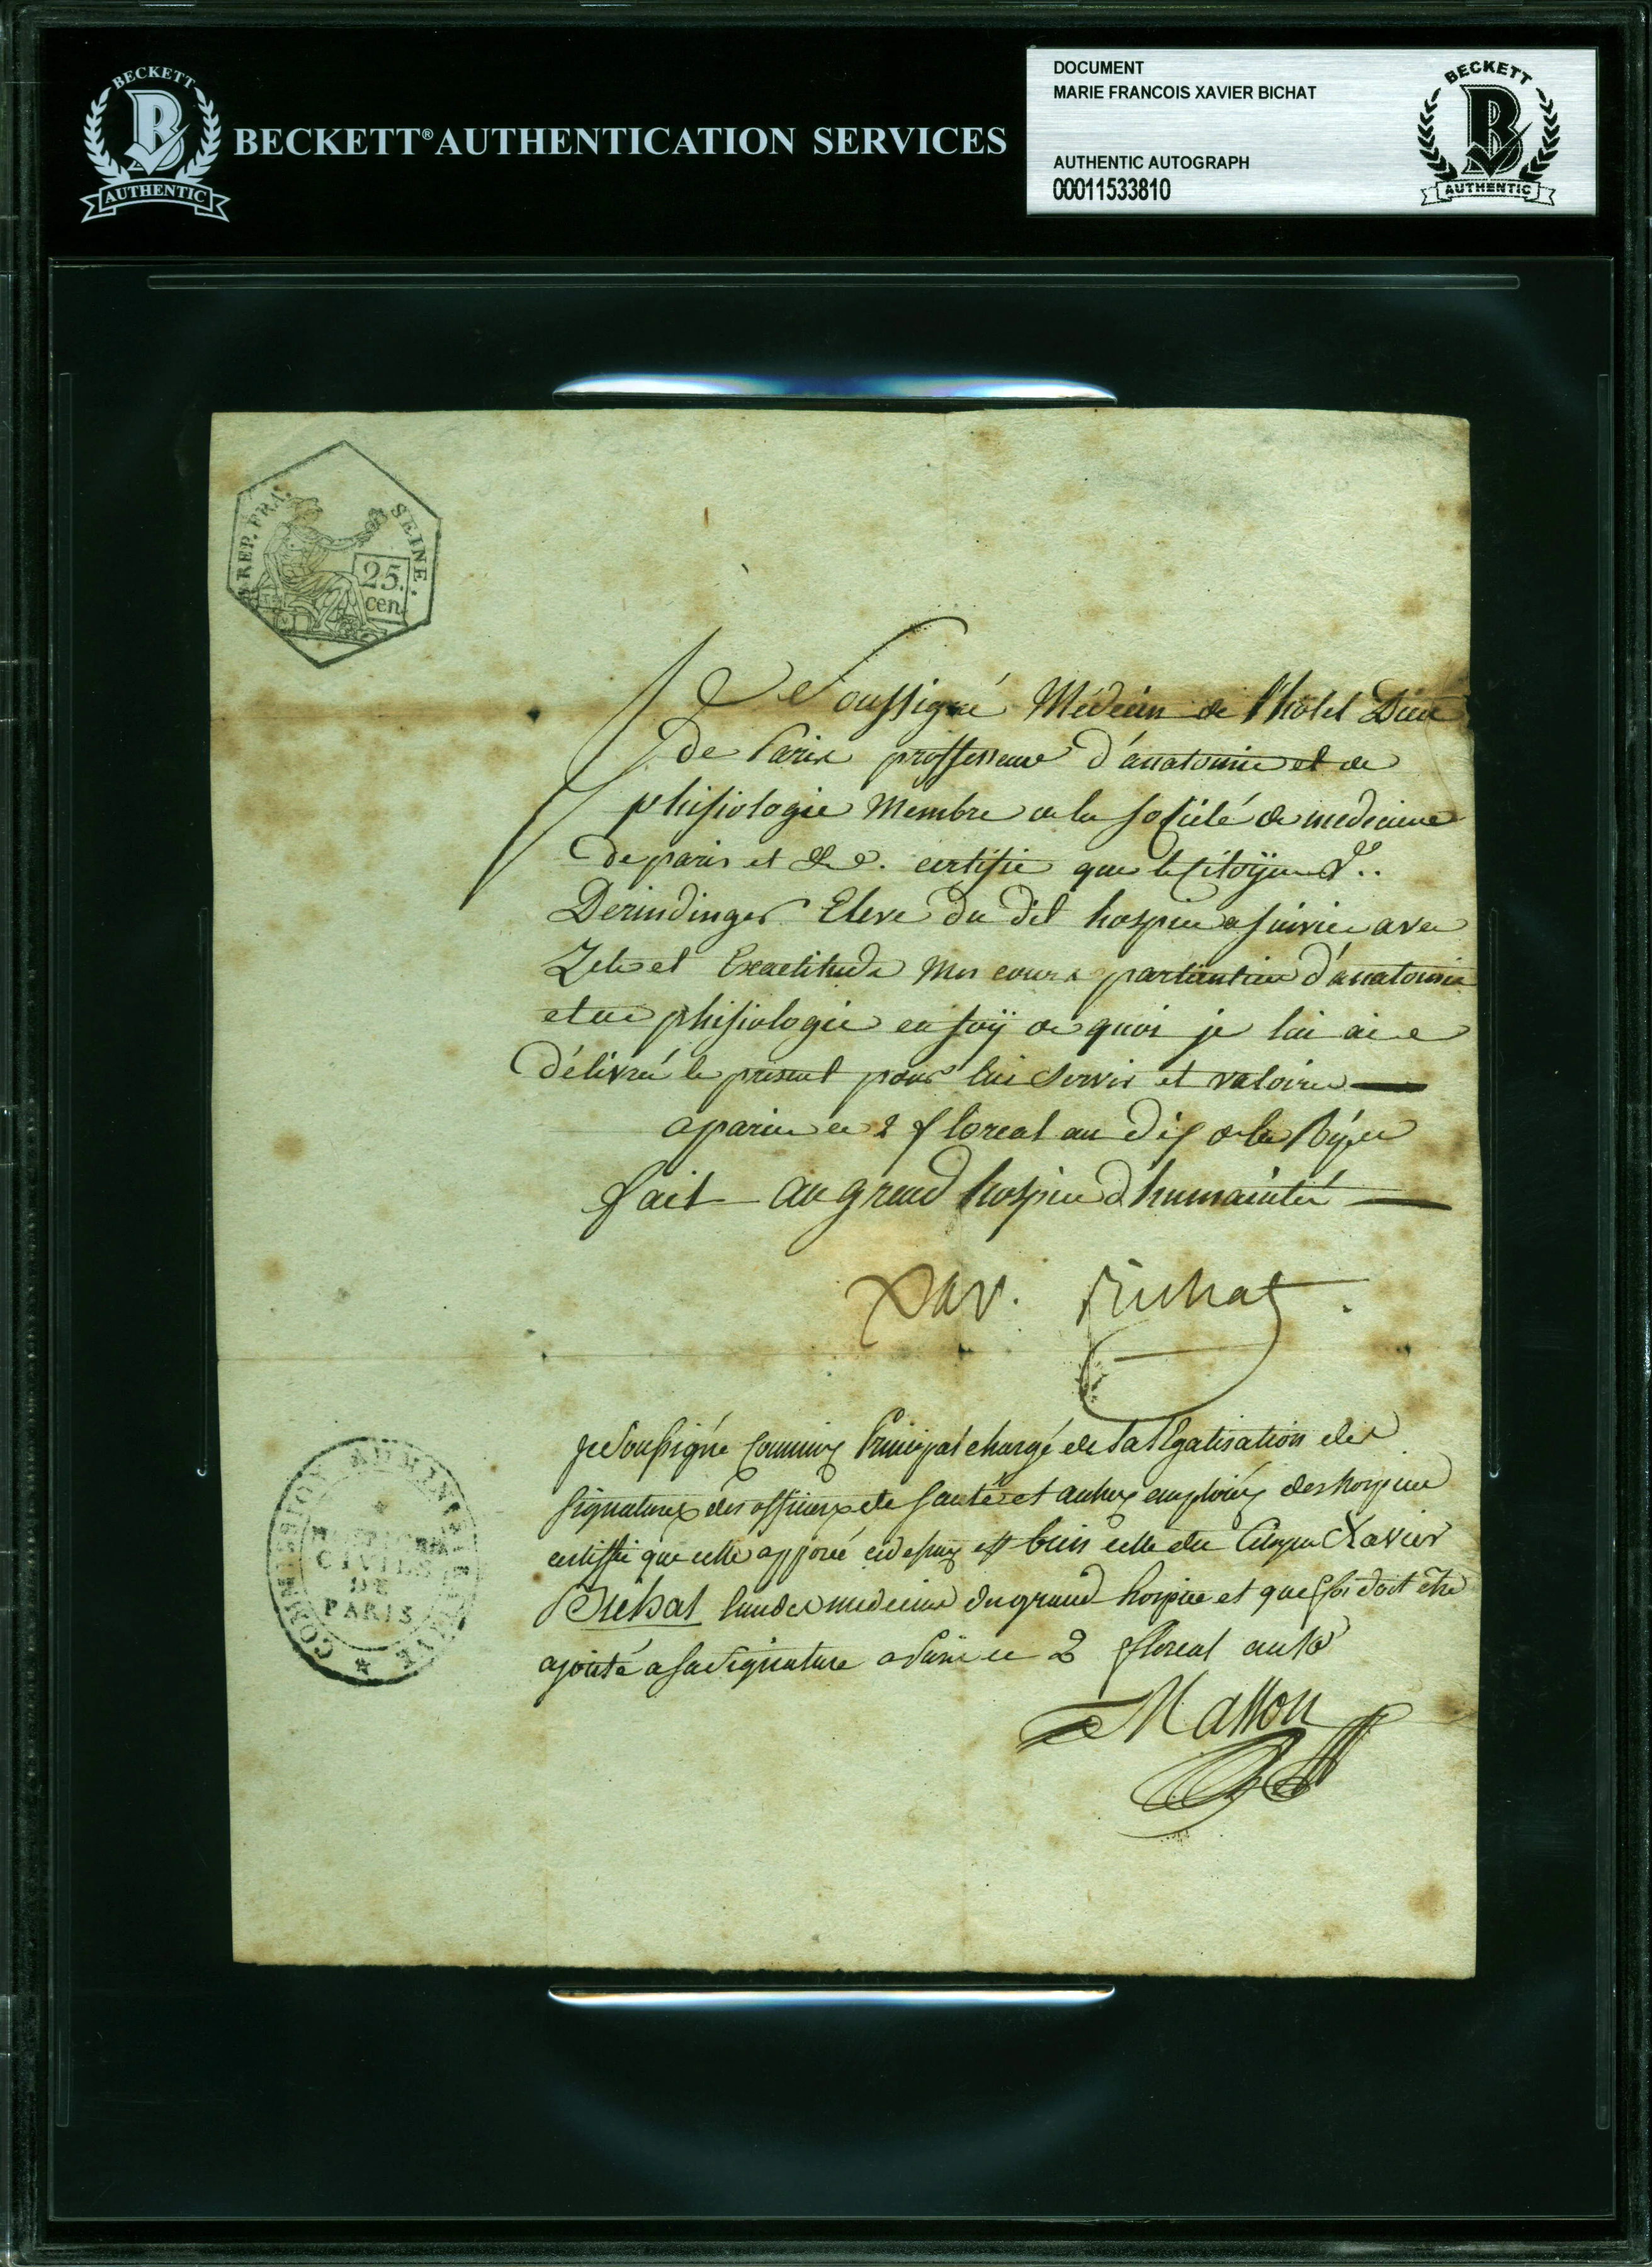 BECKETT
B
AUTHENTIC
BECKETT® AUTHENTICATION SERVICES
DOCUMENT
MARIE FRANCOIS XAVIER BICHAT
AUTHENTIC AUTOGRAPH
00011533810
BECKETT
B
AUTHENTIC
REP. FRA.
SEINE.
25.
cen.
Je Soussigné Médecin de l'hotel Dieu
de Paris proffesseur d'anatomie et de
phisiologie Membre de la société de medecine
de paris et &c. certifie que le citoÿen
Derindinger Eleve du dit hospice a suivie avec
Zele et Exactitude Mes cours particulier d'anatomie
et de phisiologie en foÿ de quoi je lui ai
délivré le present pour lui servir et valoire
a paris ce 2 floreal an dix de la
fait au grand hospice d'humainité
Xav. Bichat.
Je Soussigné Commis Principal chargé de la légalisation des
signatures des officiers de santé et autres emploiés des hospices
certiffie que celle apposée cy dessus est bien celle du Citoyen Xavier
Bichat l'un des medecins du grand hospice et que foi doit être
ajouté a sa signature a Paris ce 2 floreal an 10
Masson
COMMISSION ADMINISTRATIVE
HOSPICES
CIVILS
DE
PARIS